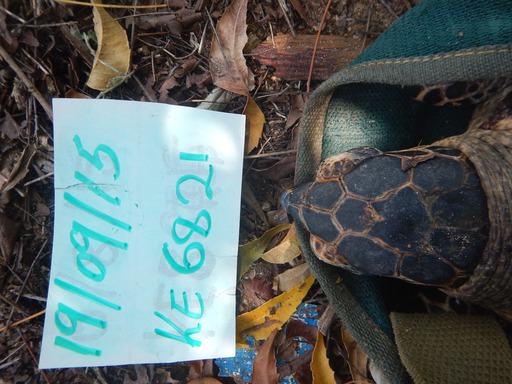 19/09/15
KE6821